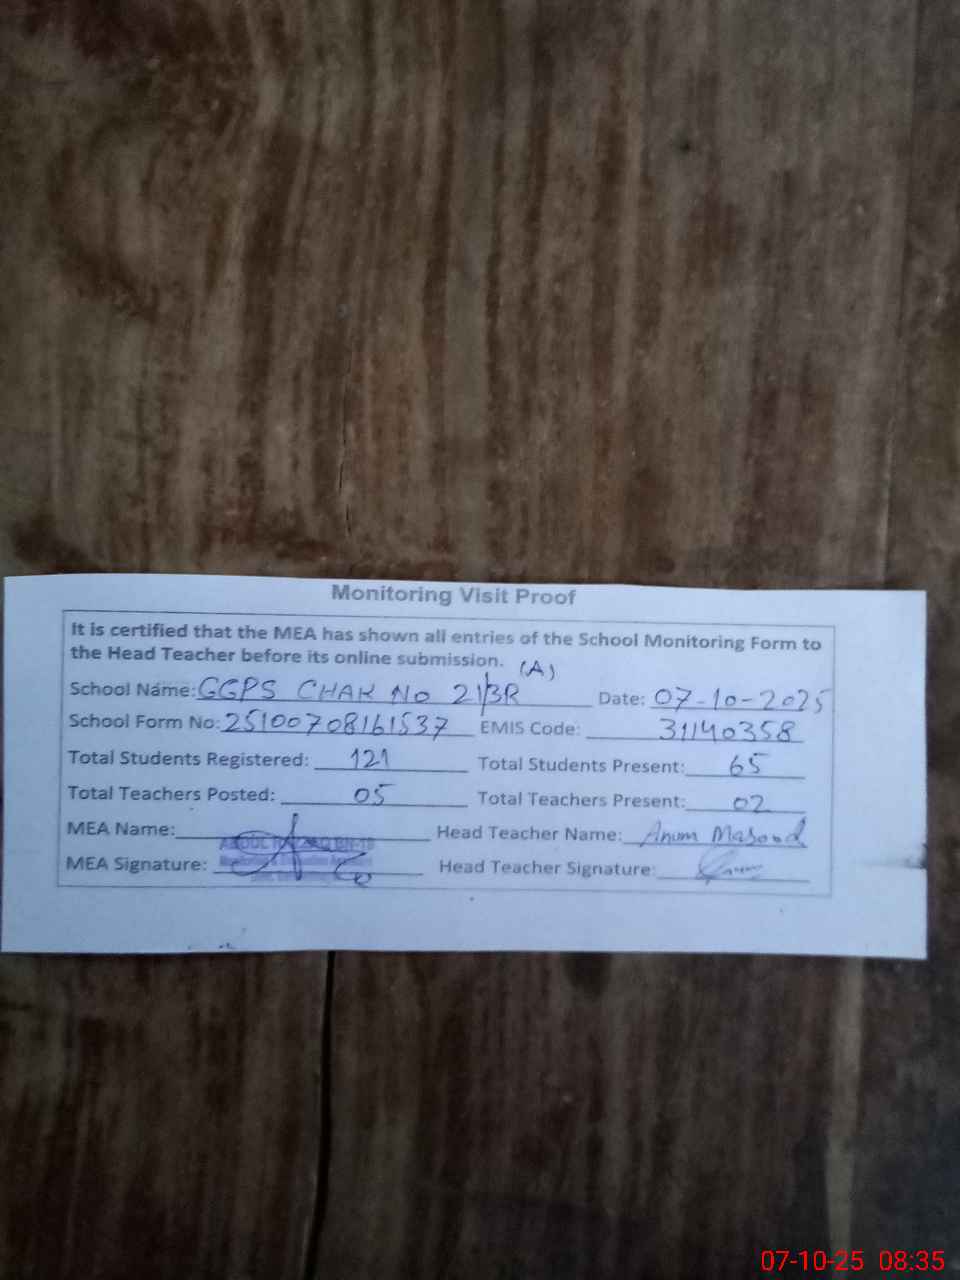 Monitoring Visit Proof
It is certified that the MEA has shown all entries of the School Monitoring Form to
the Head Teacher before its online submission.
(A)
School Name: GGPS CHAK No 21/3R Date: 07-10-2025
School Form No: 25100708161537 EMIS Code: 31140358
Total Students Registered: 121 Total Students Present: 65
Total Teachers Posted: 05 Total Teachers Present: 02
MEA Name: Head Teacher Name: Anum Masood
MEA Signature: Head Teacher Signature:
07-10-25 08:35